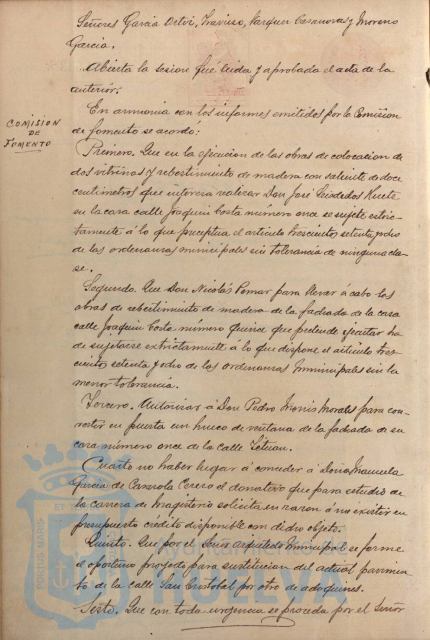 Señores Garcia Ortiz, Travieso, Vazquez Casanovas y Moreno
Garcia.
Abierta la sesion fué leida y aprobada el acta de la
anterior.
COMISION
DE
FOMENTO
En armonia con los informes emitidos por la Comision
de fomento se acordó:
Primero. Que en la ejecucion de las obras de colocacion de
dos vitrinas y rebestimiento de madera con saliente de doce
centimetros que interesa realizar Don José
en la casa calle Joaquin Costa número once se sujete estric-
tamente á lo que preceptua el articulo trescientos setenta y ocho
de las ordenanzas municipales sin tolerancia de ninguna cla-
se.
Segundo. Que Don Nicolás Pomar para llevar á cabo las
obras de rebestimiento de madera de la fachada de la casa
calle Joaquin Costa número quince que pretende ejecutar ha
de sujetarse estrictamente á lo que dispone el articulo tres-
cientos setenta y ocho de las ordenanzas municipales sin la
menor tolerancia.
Tercero. Autorizar á Don Pedro Morales para con-
vertir en puerta un hueco de ventana de la fachada de su
casa número once de la calle Tetuan.
Cuarto no haber lugar á conceder á Doña Manuela
Garcia de Cazorla Cerero el donativo que para estudios de
la carrera de Magisterio solicita en razon á no existir en
presupuesto crédito disponible con dicho objeto.
Quinto. Que por el Señor Arquitecto Municipal se forme
el oportuno proyecto para sustitucion del actual pavimen-
to de la calle San Cristobal por otro de adoquines.
Sexto. Que con toda urgencia se proceda por el Señor